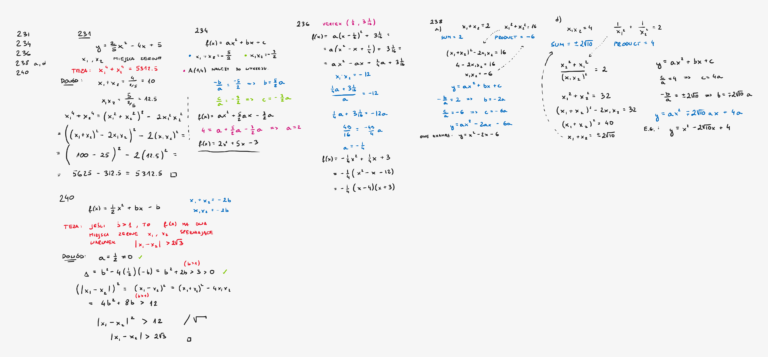 231
234
236
238 a, d
240
231
y = 2/5 x² - 4x + 5
x₁, x₂ MIEJSCA ZEROWE
TEZA: x₁⁴ + x₂⁴ = 5312.5
DOWÓD:
x₁ + x₂ = 4/(2/5) = 10
x₁x₂ = 5/(2/5) = 12.5
x₁⁴ + x₂⁴ = (x₁² + x₂²)² - 2x₁²x₂² =
= ((x₁+x₂)² - 2x₁x₂)² - 2(x₁x₂)² =
= (100 - 25)² - 2(12.5)² =
= 5625 - 312.5 = 5312.5 □
234
f(x) = ax² + bx + c
A(1,4) NALEŻY DO WYKRESU
f(x) = ax² + 5/2 ax - 3/2 a
4 = a + 5/2 a - 3/2 a → a = 2
f(x) = 2x² + 5x - 3
236
VERTEX (1/2, 3 1/16)
x₁x₂ = -12
a = -1/4
f(x) = -1/4 x² + 1/4 x + 3
= -1/4 (x² - x - 12)
= -1/4 (x-4)(x+3)
238
a)
x₁ + x₂ = 2
x₁² + x₂² = 16
SUM = 2
PRODUCT = -6
(x₁+x₂)² - 2x₁x₂ = 16
4 - 2x₁x₂ = 16
x₁x₂ = -6
y = ax² + bx + c
-b/a = 2 ⇒ b = -2a
c/a = -6 ⇒ c = -6a
y = ax² - 2ax - 6a
y = x² - 2x - 6
d)
x₁x₂ = 4
1/x₁² + 1/x₂² = 2
SUM = ±2√10
PRODUCT = 4
(x₁² + x₂²)/(x₁x₂)² = 2
x₁² + x₂² = 32
(x₁+x₂)² - 2x₁x₂ = 32
(x₁+x₂)² = 40
x₁ + x₂ = ±2√10
y = ax² + bx + c
c/a = 4 ⇒ c = 4a
-b/a = ±2√10 ⇒ b = ∓2√10 a
y = ax² ∓ 2√10 ax + 4a
E.G.: y = x² - 2√10x + 4
240
f(x) = 1/2 x² + bx - b
x₁ + x₂ = -2b
x₁x₂ = -2b
TEZA: JEŚLI b > 1, TO f(x) MA DWA
MIEJSCA ZEROWE x₁, x₂ SPEŁNIAJĄCE
WARUNEK |x₁ - x₂| > 2√3
DOWÓD: a = 1/2 ≠ 0 ✓
(b>1)
Δ = b² - 4(1/2)(-b) = b² + 2b > 3 > 0 ✓
(|x₁ - x₂|)² = (x₁ - x₂)² = (x₁+x₂)² - 4x₁x₂
(b>1)
= 4b² + 8b > 12
|x₁ - x₂|² > 12 /√
|x₁ - x₂| > 2√3 □